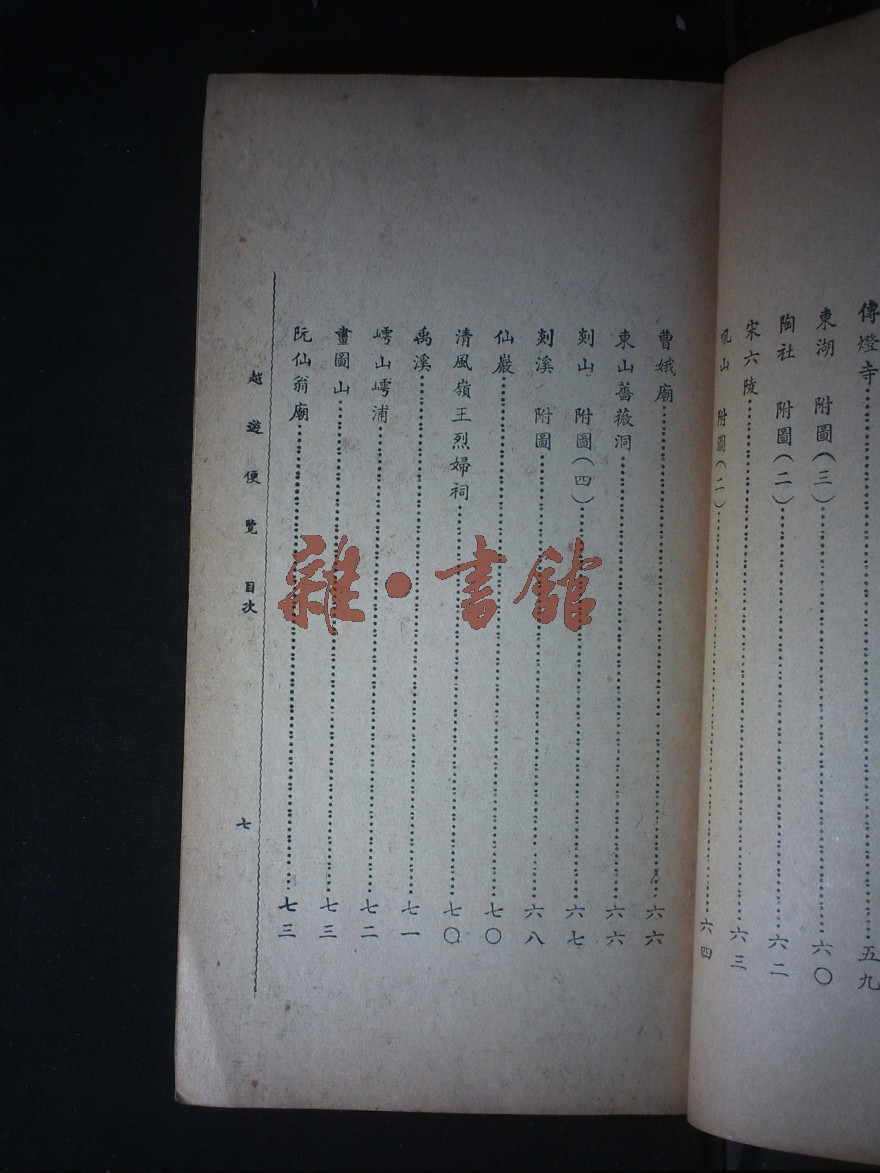 傳燈寺 五九
東湖 附圖(三) 六〇
陶社 附圖(二) 六二
宋六陵 六三
吼山 附圖(二) 六四
曹娥廟 六六
東山薔薇洞 六六
剡山 附圖(四) 六七
剡溪 附圖 六八
仙巖 七〇
清風嶺王烈婦祠 七〇
禹溪 七一
嶀山嶀浦 七二
畫圖山 七三
阮仙翁廟 七三
越遊便覽 目次
七
雜·書館